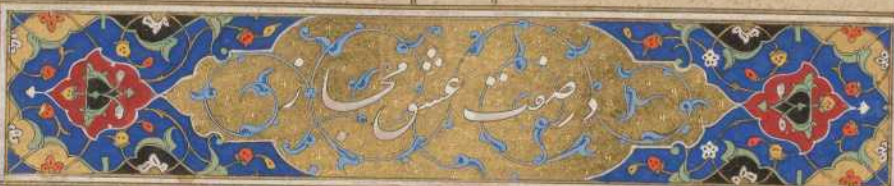 در صفت عشق مجاز